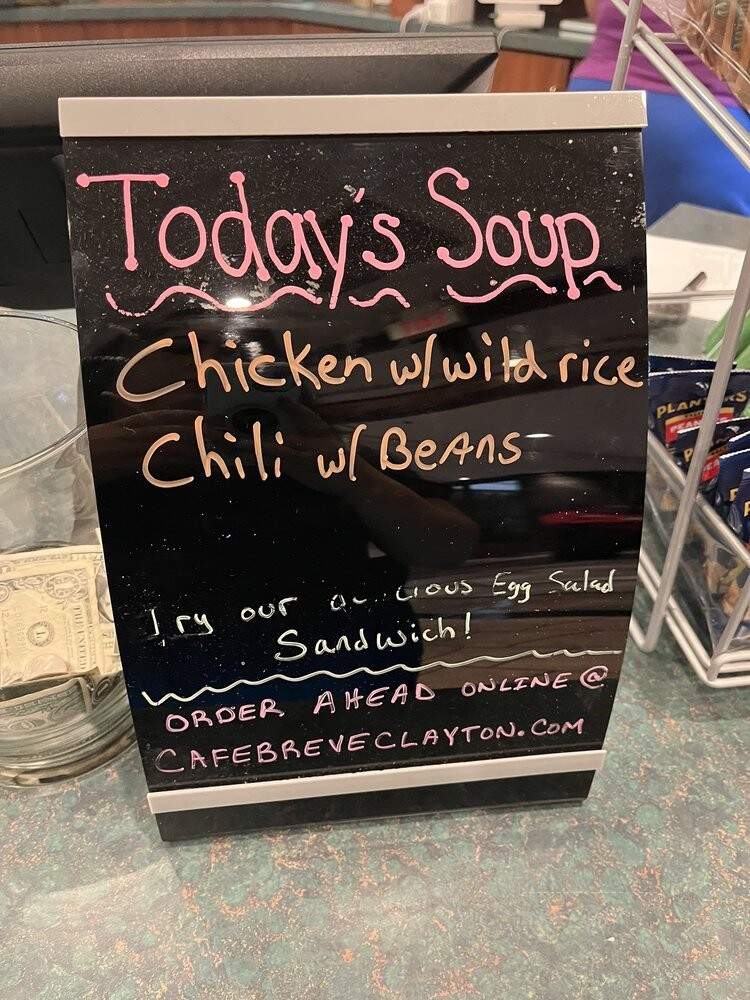 Today's Soup
Chicken w/wild rice
Chili w/ BeAns
Try our Egg Salad
Sandwich!
ORDER AHEAD ONLINE @
CAFEBREVECLAYTON.COM
PLANTERS
PEANUTS